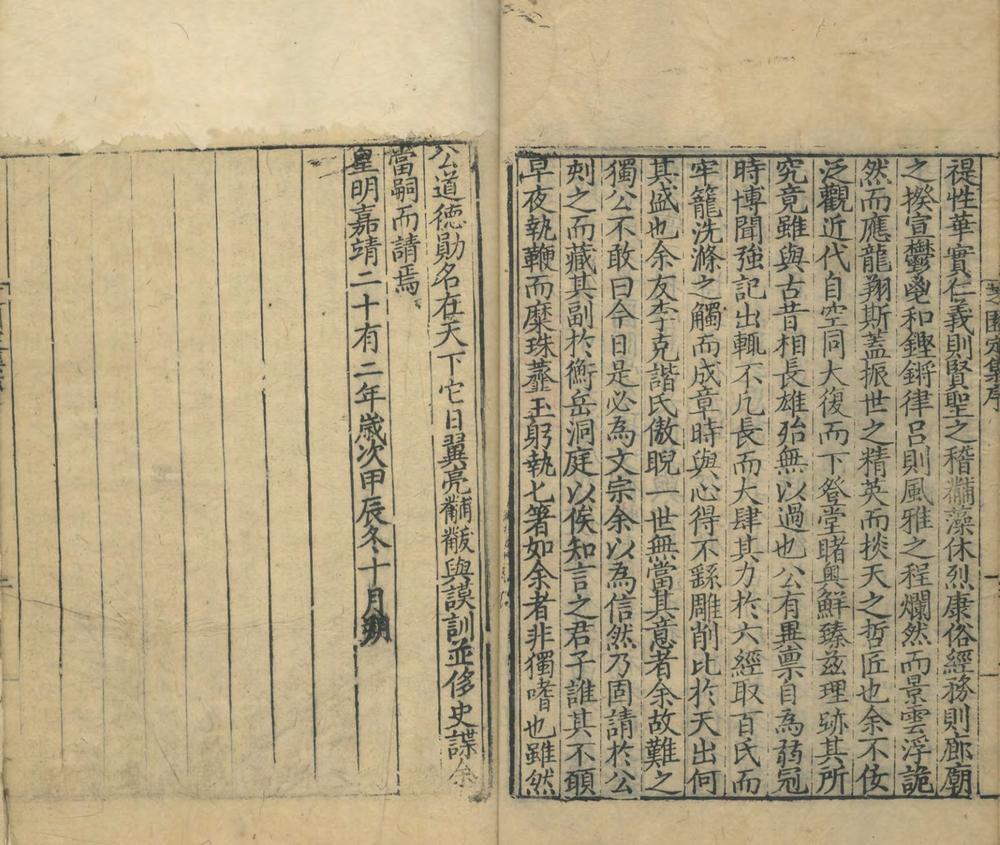 禔性華實仁義則賢聖之稽黼藻休烈康俗經務則廊廟
之揆宣鬱鬯和鏗鏘律呂則風雅之程爛然而景雲浮詭
然而應龍翔斯蓋振世之精英而掞天之哲匠也余不佞
泛觀近代自空同大復而下登堂睹奧鮮臻茲理跡其所
究竟雖與古昔相長雄殆無以過也公有異禀自為弱冠
時博聞強記出輒不凡長而大肆其力於六經取百氏而
牢籠洗滌之觸而成章時與心得不繇雕削比於天出何
其盛也余友李克諧氏傲睨一世無當其意者余故難之
獨公不敢曰今日是必為文宗余以為信然乃固請於公
刻之而藏其副於衡岳洞庭以俟知言之君子誰其不願
早夜執鞭而糜珠虀玉躬執匕箸如余者非獨嗜也雖然
公道德勛名在天下它日翼亮黼黻與謨訓並侈史諜余
當嗣而請焉
皇明嘉靖二十有二年歲次甲辰冬十月朔
園定集序